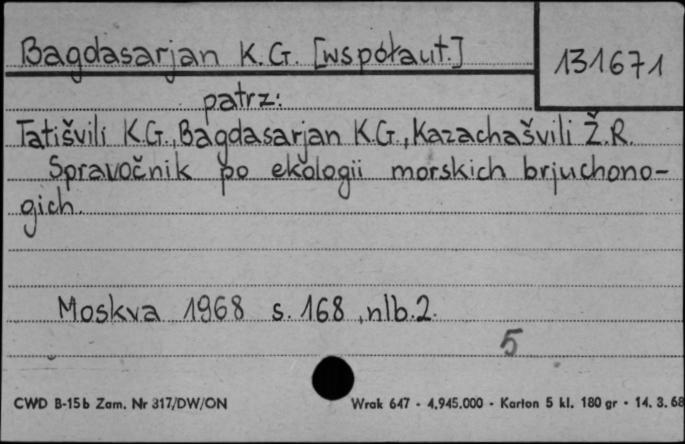 Bagdasarjan K.G. [współaut.]
131671
patrz:
Tatišvili K.G., Bagdasarjan K.G., Kazachašvili Ž.R.
Spravočnik po ekologii morskich brjuchono-
gich.
Moskva 1968 s. 168, nlb. 2.
5
CWD B-15b Zam. Nr 317/DW/ON
Wrak 647 - 4.945.000 - Karton 5 kl. 180 gr - 14. 3. 68